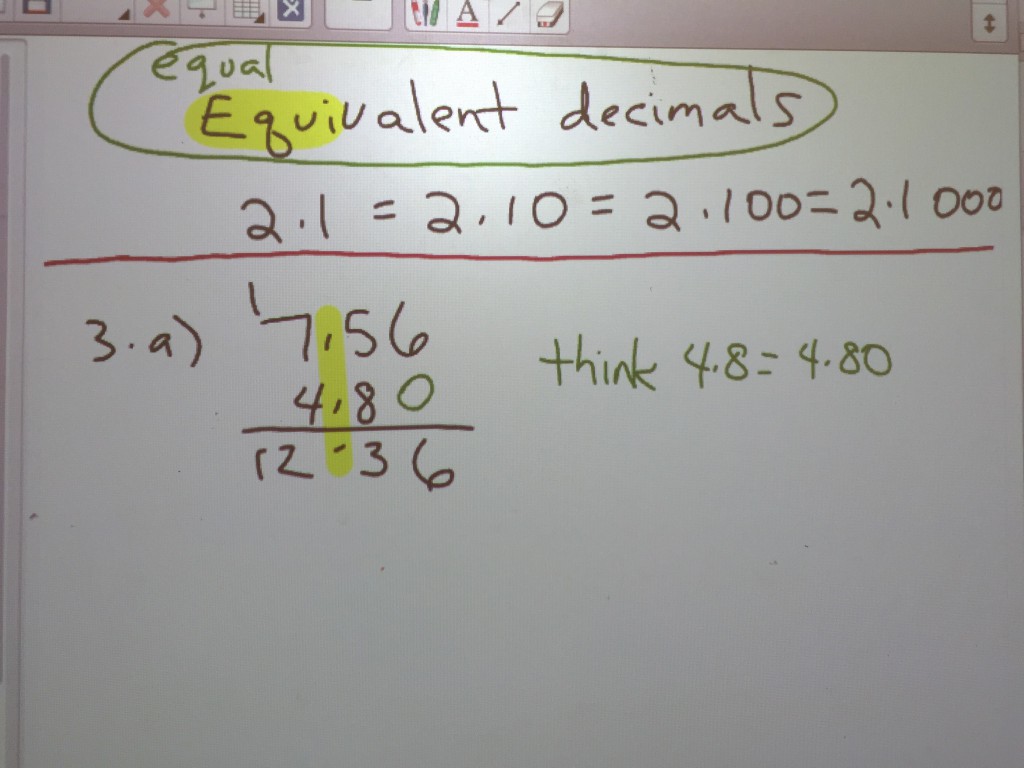 equal
Equivalent decimals
2.1 = 2.10 = 2.100 = 2.1 000
3.a) 1 7.56
4.80
12.36
think 4.8 = 4.80